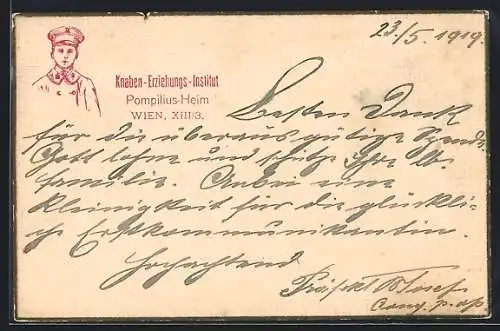 23./5. 1919.
Knaben-Erziehungs-Institut
Pompilius-Heim
WIEN, XIII/3.
Besten Dank
für die überaus gütige Spende.
Gott lohne und schütze Ihre lb.
Familie. Anbei eine
Kleinigkeit für die glückli-
che Erstkommunikantin.
Hochachtend
Präfekt P. Josef